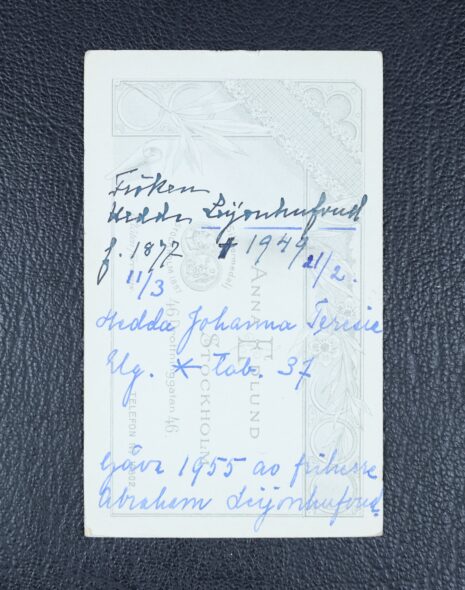 Fröken
Hedda Leijonhufvud
f. 1877 † 1949
11/3 21/2.
Hedda Johanna Teresie
Elg. * Tab. 37
Gåva 1955 av friherre
Abraham Leijonhufvud
ANNA EDLUND
STOCKHOLM
46 Drottninggatan 46.
TELEFON